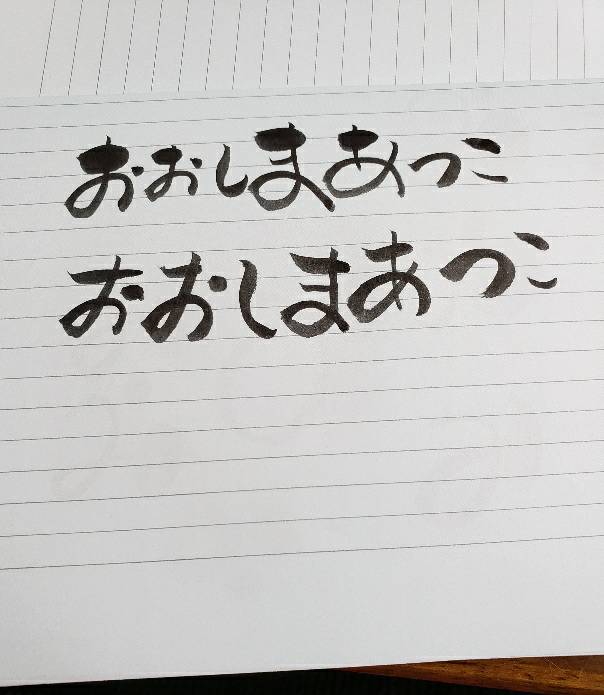 おおしまあつこ
おおしまあつこ